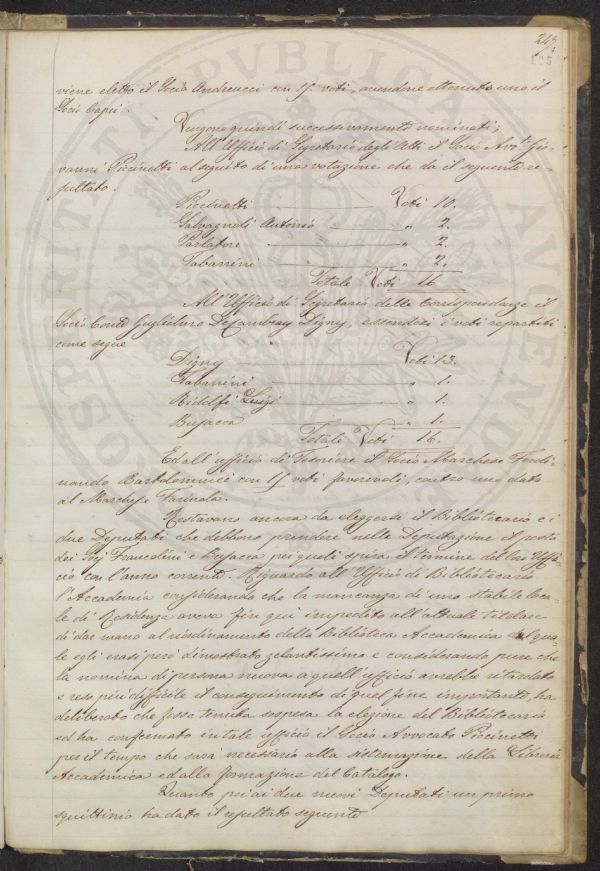 243
viene eletto il Socio Andreucci con 15 voti, avendone ottenuto uno il
Socio Capei.
Vengono quindi successivamente nominati;
All'Uffizio di Segretario degli Atti il Socio Avv.to Gio-
vanni Piccinetti al seguito di una votazione che da il seguente re-
sultato.
Piccinetti Voti 10.
Salvagnoli Antonio " 2.
Parlatore " 2.
Tabarrini " 2.
Totale Voti 16
All'Uffizio di Segretario delle Corrispondenze il
Socio Conte Guglielmo De Cambray Digny, essendosi i voti repartiti
come segue
Digny Voti 13.
Tabarrini " 1.
Ridolfi Luigi " 1.
Busacca " 1.
Totale Voti 16.
Ed all'uffizio di Tesoriere il Socio Marchese Ferdi-
nando Bartolommei con 15 voti favorevoli, contro uno dato
al Marchese Farinola.
Restavano ancora da eleggersi il Bibliotecario e i
due Deputati che debbono prendere nella Deputazione il posto
dei Socj Francolini e Busacca pei quali spira il termine del loro Uffi-
cio con l'anno corrente. Riguardo all'Uffizio di Bibliotecario
l'Accademia considerando che la mancanza di uno stabile loca-
le di Residenza aveva fin qui impedito all'attuale titolare
di dar mano al riordinamento della Biblioteca Accademica al qua-
le egli erasi però dimostrato zelantissimo e considerando pure che
la nomina di persona nuova a quell'uffizio avrebbe ritardato
e reso più difficile il conseguimento di quel fine importante, ha
deliberato che fosse tenuta sospesa la elezione del Bibliotecario
ed ha confermato in tale ufficio il Socio Avvocato Piccinetti
per il tempo che sarà necessario alla sistemazione della Libreria
Accademica ed alla formazione del Catalogo.
Quanto poi ai due nuovi Deputati un primo
squittinio ha dato il resultato seguente